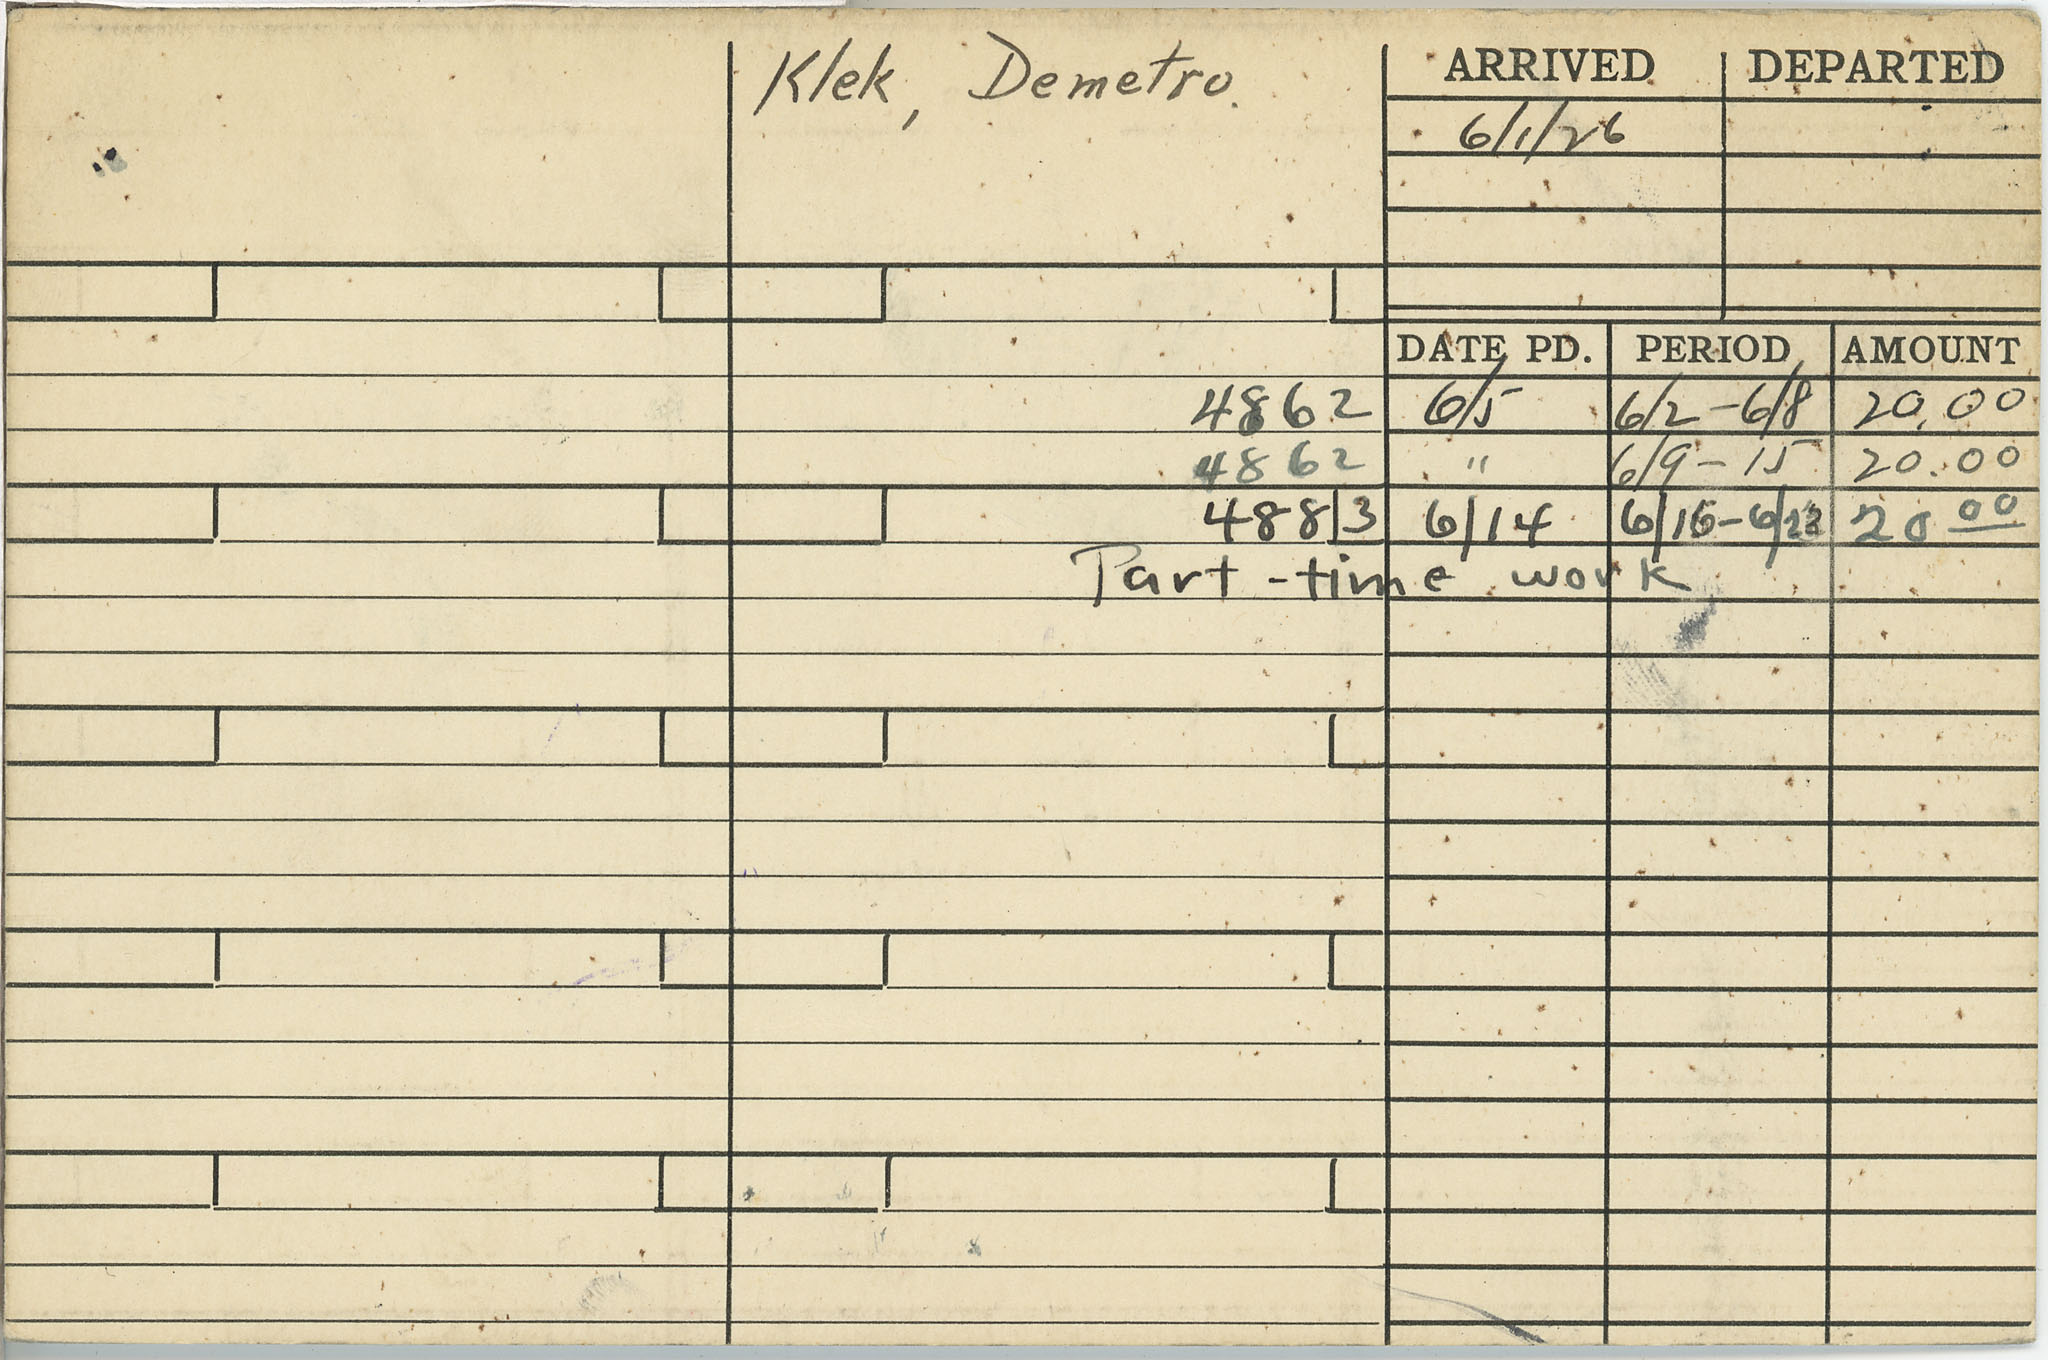 Klek, Demetro.
ARRIVED DEPARTED
6/1/26
DATE PD. PERIOD AMOUNT
4862 6/5 6/2-6/8 20.00
4862 " 6/9-15 20.00
4883 6/14 6/16-6/23 20 00
Part-time work